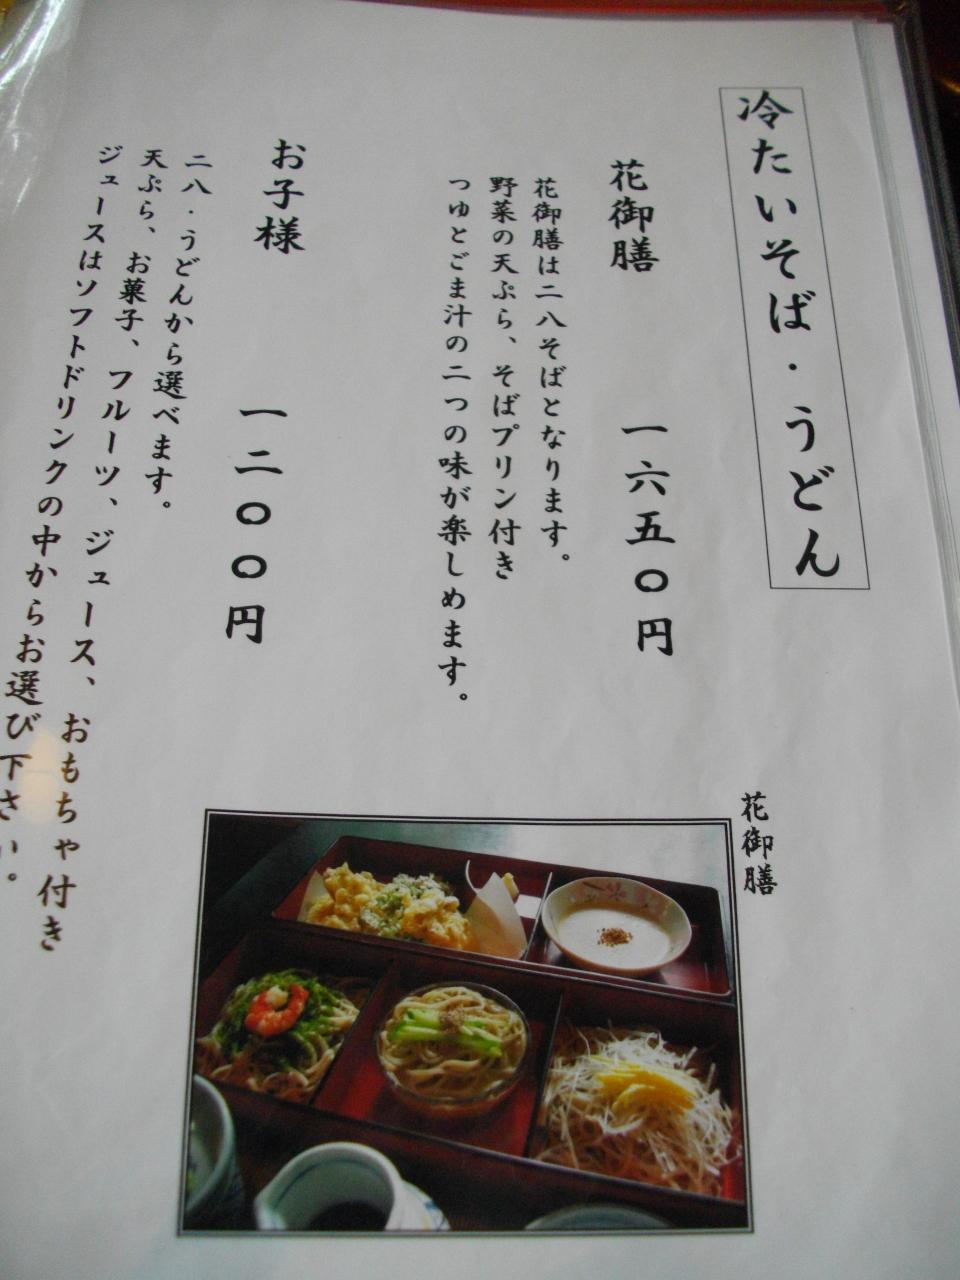 冷たいそば・うどん
花御膳　一六五〇円
花御膳は二八そばとなります。
野菜の天ぷら、そばプリン付き
つゆとごま汁の二つの味が楽しめます。
お子様　一二〇〇円
二八・うどんから選べます。
天ぷら、お菓子、フルーツ、ジュース、おもちゃ付き
ジュースはソフトドリンクの中からお選び下さい。
花御膳